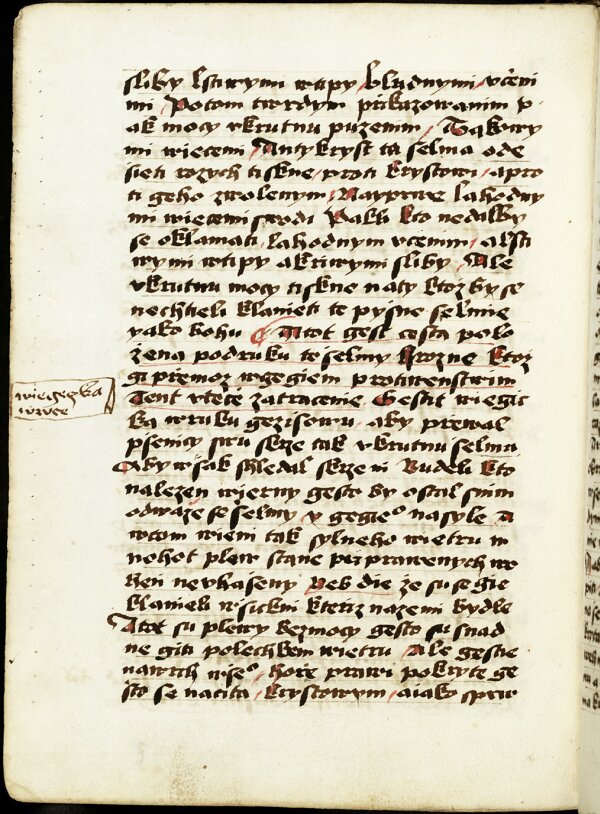 sliby lstiwymi wtipy bludnymi včeni
mi Potom twrdym přikazowanim v
ak mocy vkrutnu puzenim Takowy
mi wiecemi Antykryst ta selma ode
sieti rozych tiskne proti krystowi apro
ti geho zwolenym Nayprwe lahodny
mi wiecemi swodi Pakli kto nedalby
se oklamati lahodnym včenim alsti
wymi wtipy akriwymi sliby Ale
vkrutnu mocy tiskne naty ktoz by se
nechtieli klanieti te pysne selmie
yako bohu Atot gest cesta polo
žena podruku te selmy Hrozne ktoz
gi přemoz wgegiem protiwenstwim
Tent vtece zatracenie Gestit wiegic
ka wruku gezisowu aby přewal
psenicy swu skrze tak vkrutnu selmu
Aby wsak shledal skrze ni Budeli kto
nalezen wierny gesto by ostal snim
odwaze se selmy y gegieo nasyle A
wtom wieni tak sylneho wietru w
nohot plew stane připrawenych wo
hen nevhaseny Neb die že su se gie
klanieli wsickni kteřiz nazemi bydle
Atot su plewy bezmocy gesto su snad
ne giti polechkem wietru Ale gestie
nawrch wseo hoře prawi pokryte ge
sto se nacita krystowym aiako sprw
wiegiczka
wruce